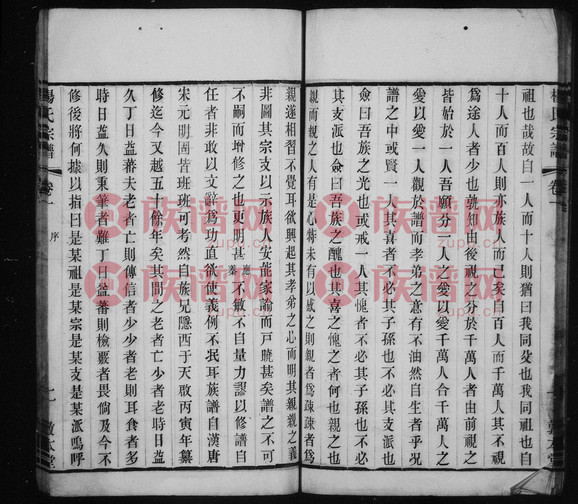 楊氏宗譜 卷一
祖也哉故自一人而十人則猶曰我同父也我同祖也自
十人而百人則亦族人而已矣自百人而千萬人其不
為途人者少也孰知由後視之分於千萬人者由前視之
皆始於一人吾願分一人之愛以愛千萬人合千萬人之
愛以愛一人觀於譜而孝弟之意有不油然自生者乎況
譜之中或賢一人其喜者不必其子孫也不必其支派也
僉曰吾族之光也或戒一人其愧者不必其子孫也不必
其支派也僉曰吾族之醜也其喜之愧之者何也親之也
親而親之人有是心特未有以感之則親者為疎疎者為
敦本堂
親遂相習不覺耳欲興起其孝弟之心而明其親親之義
非圖其宗支以示族人安能家諭而戶曉甚矣譜之不可
不嗣而增修之也更明甚 不敏不自量力謬以修譜自
任者非敢以文辭為功直欲使義例不泯耳族譜自漢唐
宋元明固皆班班可考然自族兄隱西于天啟丙寅年纂
修迄今又越五十餘年矣其間之老者亡少者老日益
久丁日益蕃夫老者亡則傳信者少少者老則耳食者多
時日益久則秉筆者難丁日益蕃則檢覈者畏倘及今不
修後將何據以指曰是某祖是某宗是某支是某派嗚呼
楊氏宗譜 卷一 序 敦本堂
族譜网
zupu.cn